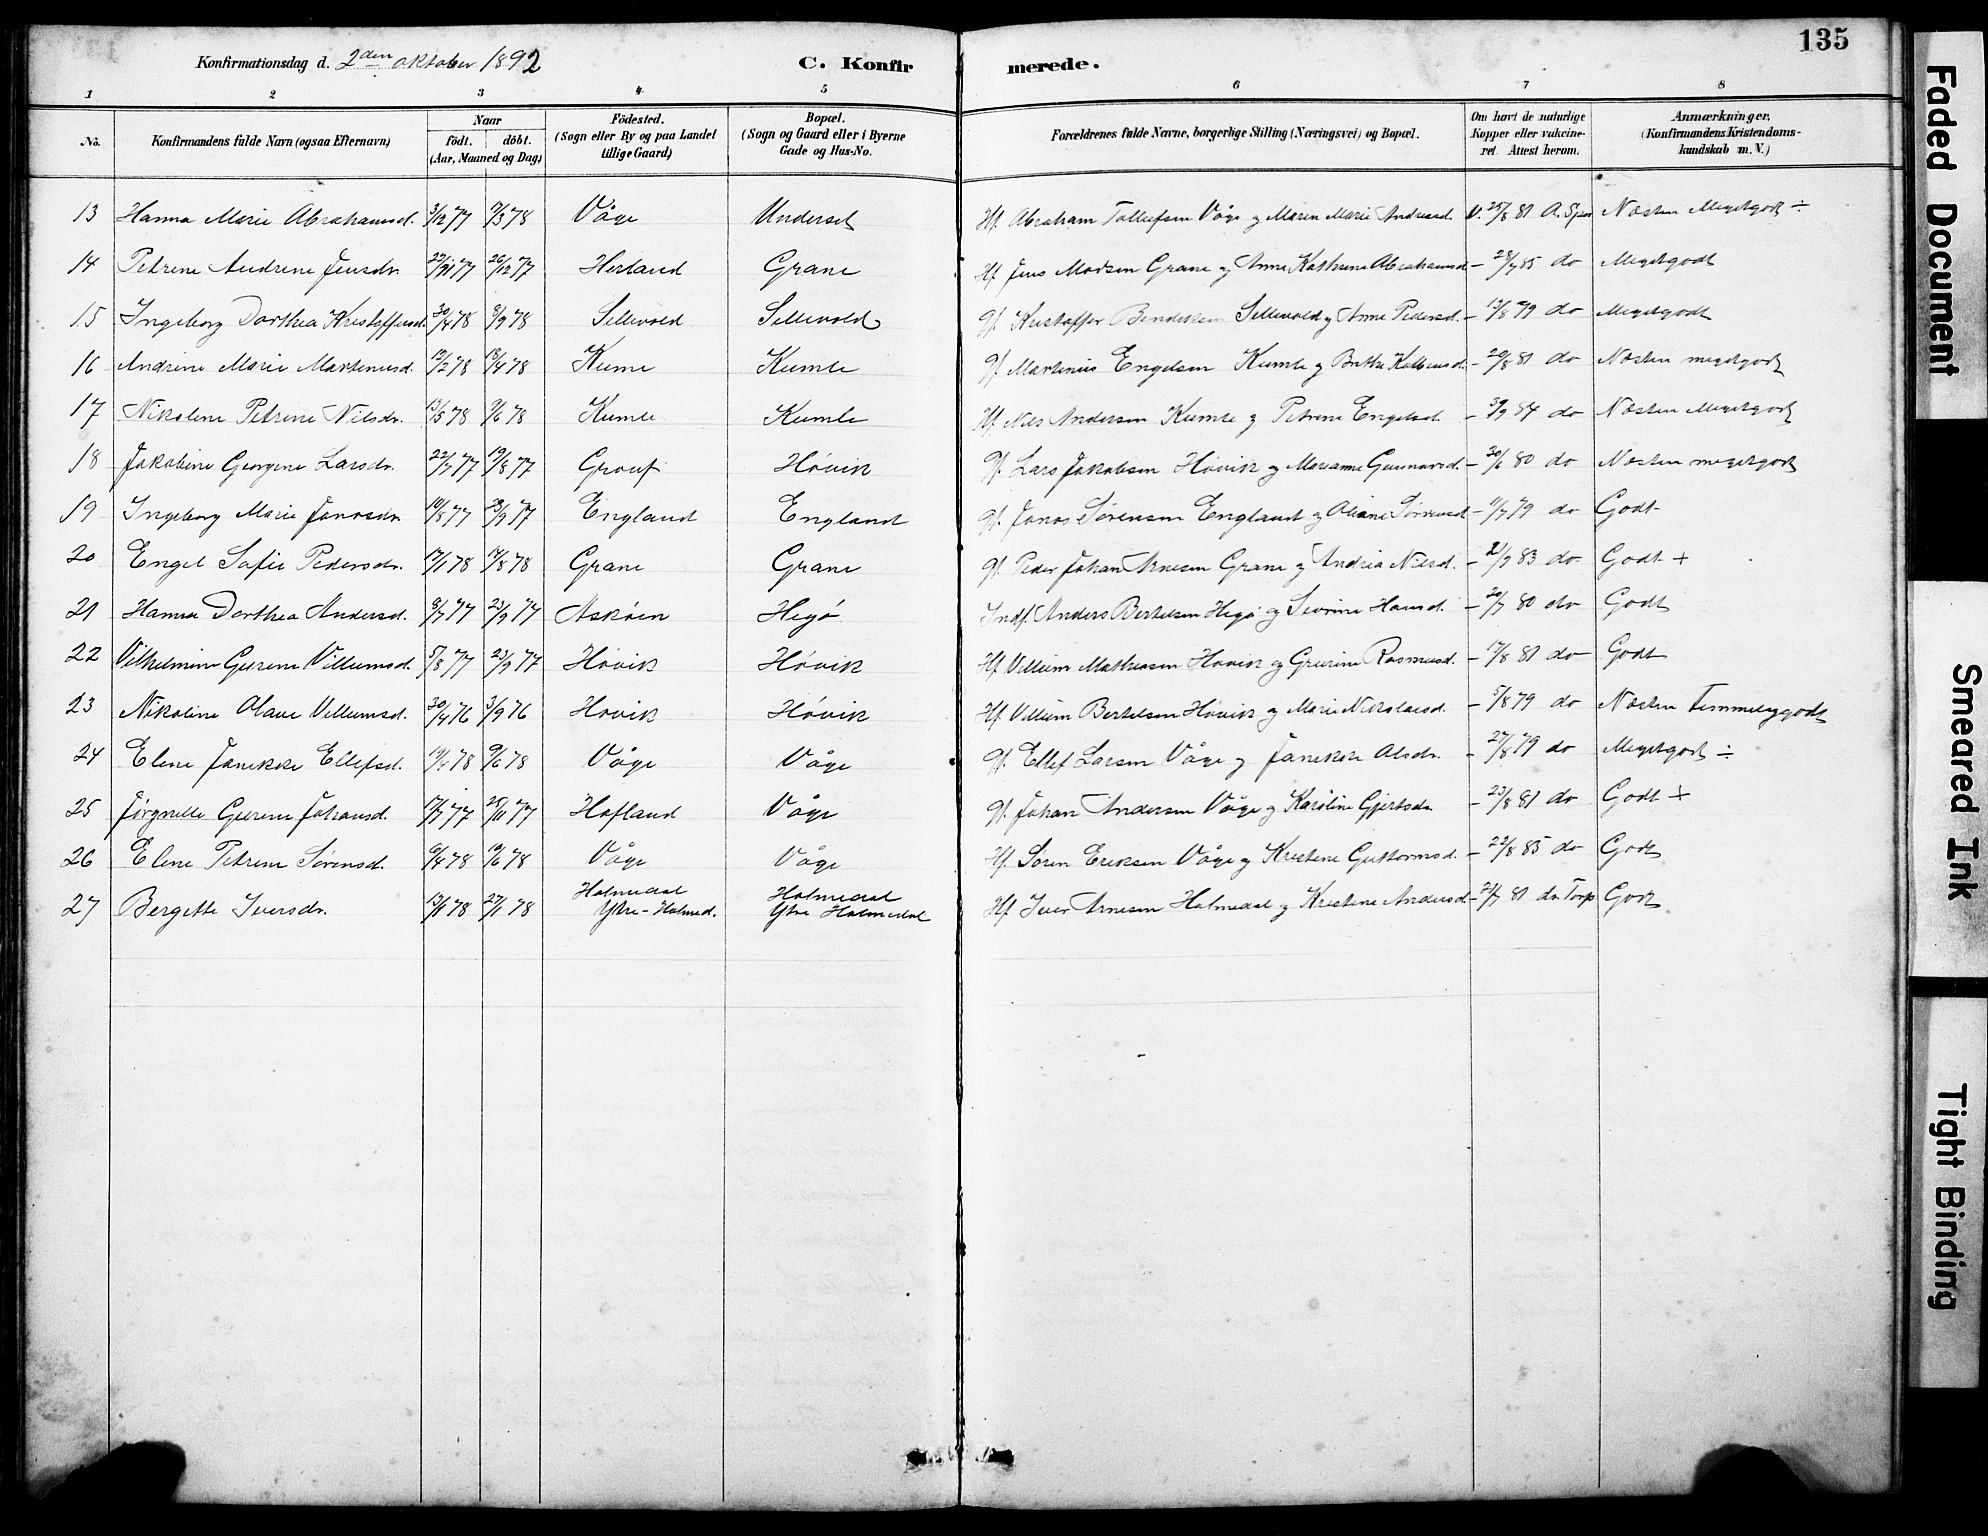 135
Konfirmationsdag d. 2den oktober 1892 C. Konfirmerede.
1 2 3 4 5 6 7 8
No. Konfirmandens fulde Navn (ogsaa Efternavn) Naar født. døbt. (Aar, Maaned og Dag) Fødested. (Sogn eller By og paa Landet tillige Gaard) Bopæl. (Sogn og Gaard eller i Byerne Gade og Hus-No. Forældrenes fulde Navne, borgerlige Stilling (Næringsvei) og Bopæl. Om havt de naturlige Kopper eller vakcineret. Attest herom. Anmærkninger. (Konfirmandens Kristendomskundskab m. V.)
13 Hanna Marie Abrahamsd. 3/12 77 7/3 78 Våge Underset Hf. Abraham Tollefsen Våge og Maren Marie Andreasd. V. 25/8 81 Næsten Megetgodt ÷
14 Petrine Andrine Jensdr. 26/12 77 Herland Grane Hf Jens Madsen Grane og Anne Kathrine Abrahamsd - 28/7 85 do Megetgodt
15 Ingeborg Dorthea Kristoffersd. 30/4 78 8/9 78 Sellevold Sellevold Gf. Kristoffer Bendiksen Sellevold og Anne Pedersd. - 13/8 79 do Megetgodt
16 Andrine Marie Martinusd. 12/2 78 18/4 78 Kumle Kumle Gf Martinius Engelsen Kumle og - 20/8 81 do Næsten megetgodt
17 Nikoline Petrine Nilsdr. 13/5 78 9/6 78 Kumle Kumle Hf. Nils Andersen Kumle og Petrine Engelsd. - 3/9 84 do Næsten Megetgodt
18 Jakobine Georgine Larsdr. 22/7 77 19/8 77 Høvik Gf. Lars Jakobsen Høvik og Marianne Gunnarsd. - 20/6 80 do Næsten megetgodt
19 Ingeborg Marie Jonasdr. 10/8 77 23/9 77 England England Gf. Jonas Sørensen England og Sørensd - 11/7 79 do Godt
20 Engel Sofie Pedersdr. 17/1 78 14/8 78 Grane Grane Gf. Peder Johan Arnesen Grane og Andrea Nilsd. - 2/9 83 do Godt +
21 Hanna Dorthea Andersd. 8/7 77 23/9 77 Askøen Hegø Indf. Anders Bertelsen Hegø og Sevrine Hansd. - 20/7 80 do Godt
22 Vilhelmine Gurine Villumsd. 5/8 77 23/9 77 Høvik Høvik Hf Villum Mathiasen Høvik og Gurine Rasmusd. - 17/8 81 do Godt
23 Nikoline Olave Villumsd. 30/4 76 3/9 76 Høvik Høvik Hf. Villum Bertelsen Høvik og Marie Nikolaisd. - 5/8 79 do Næsten Temmeliggodt
24 Elene Janikke Ellefsd. 9/6 78 Våge Våge Gf. Ellef Larsen Våge og Janikke Olsdr. - 27/8 79 do Megetgodt ÷
25 Jørgnelle Gurine Johansd. 17/7 77 25/11 77 Hafland Våge Gf. Johan Andersen Våge og Karoline Gjertsdr - 23/8 81 do Godt +
26 Elene Petrine Sørensd. 9/4 78 10/6 78 Våge Våge Hf. Søren Eriksen Våge og Kristine Guttormsd. - 23/8 85 do Godt
27 Bergitte Iversdr. 13/1 78 27/1 78 Holmedal Ytre-Holmed. Holmedal Ytre Holmedal Hf. Iver Arnesen Holmedal og Kristine Andersd - 21/7 81 do. Torp Godt
Faded Document
Smeared Ink
Tight Binding